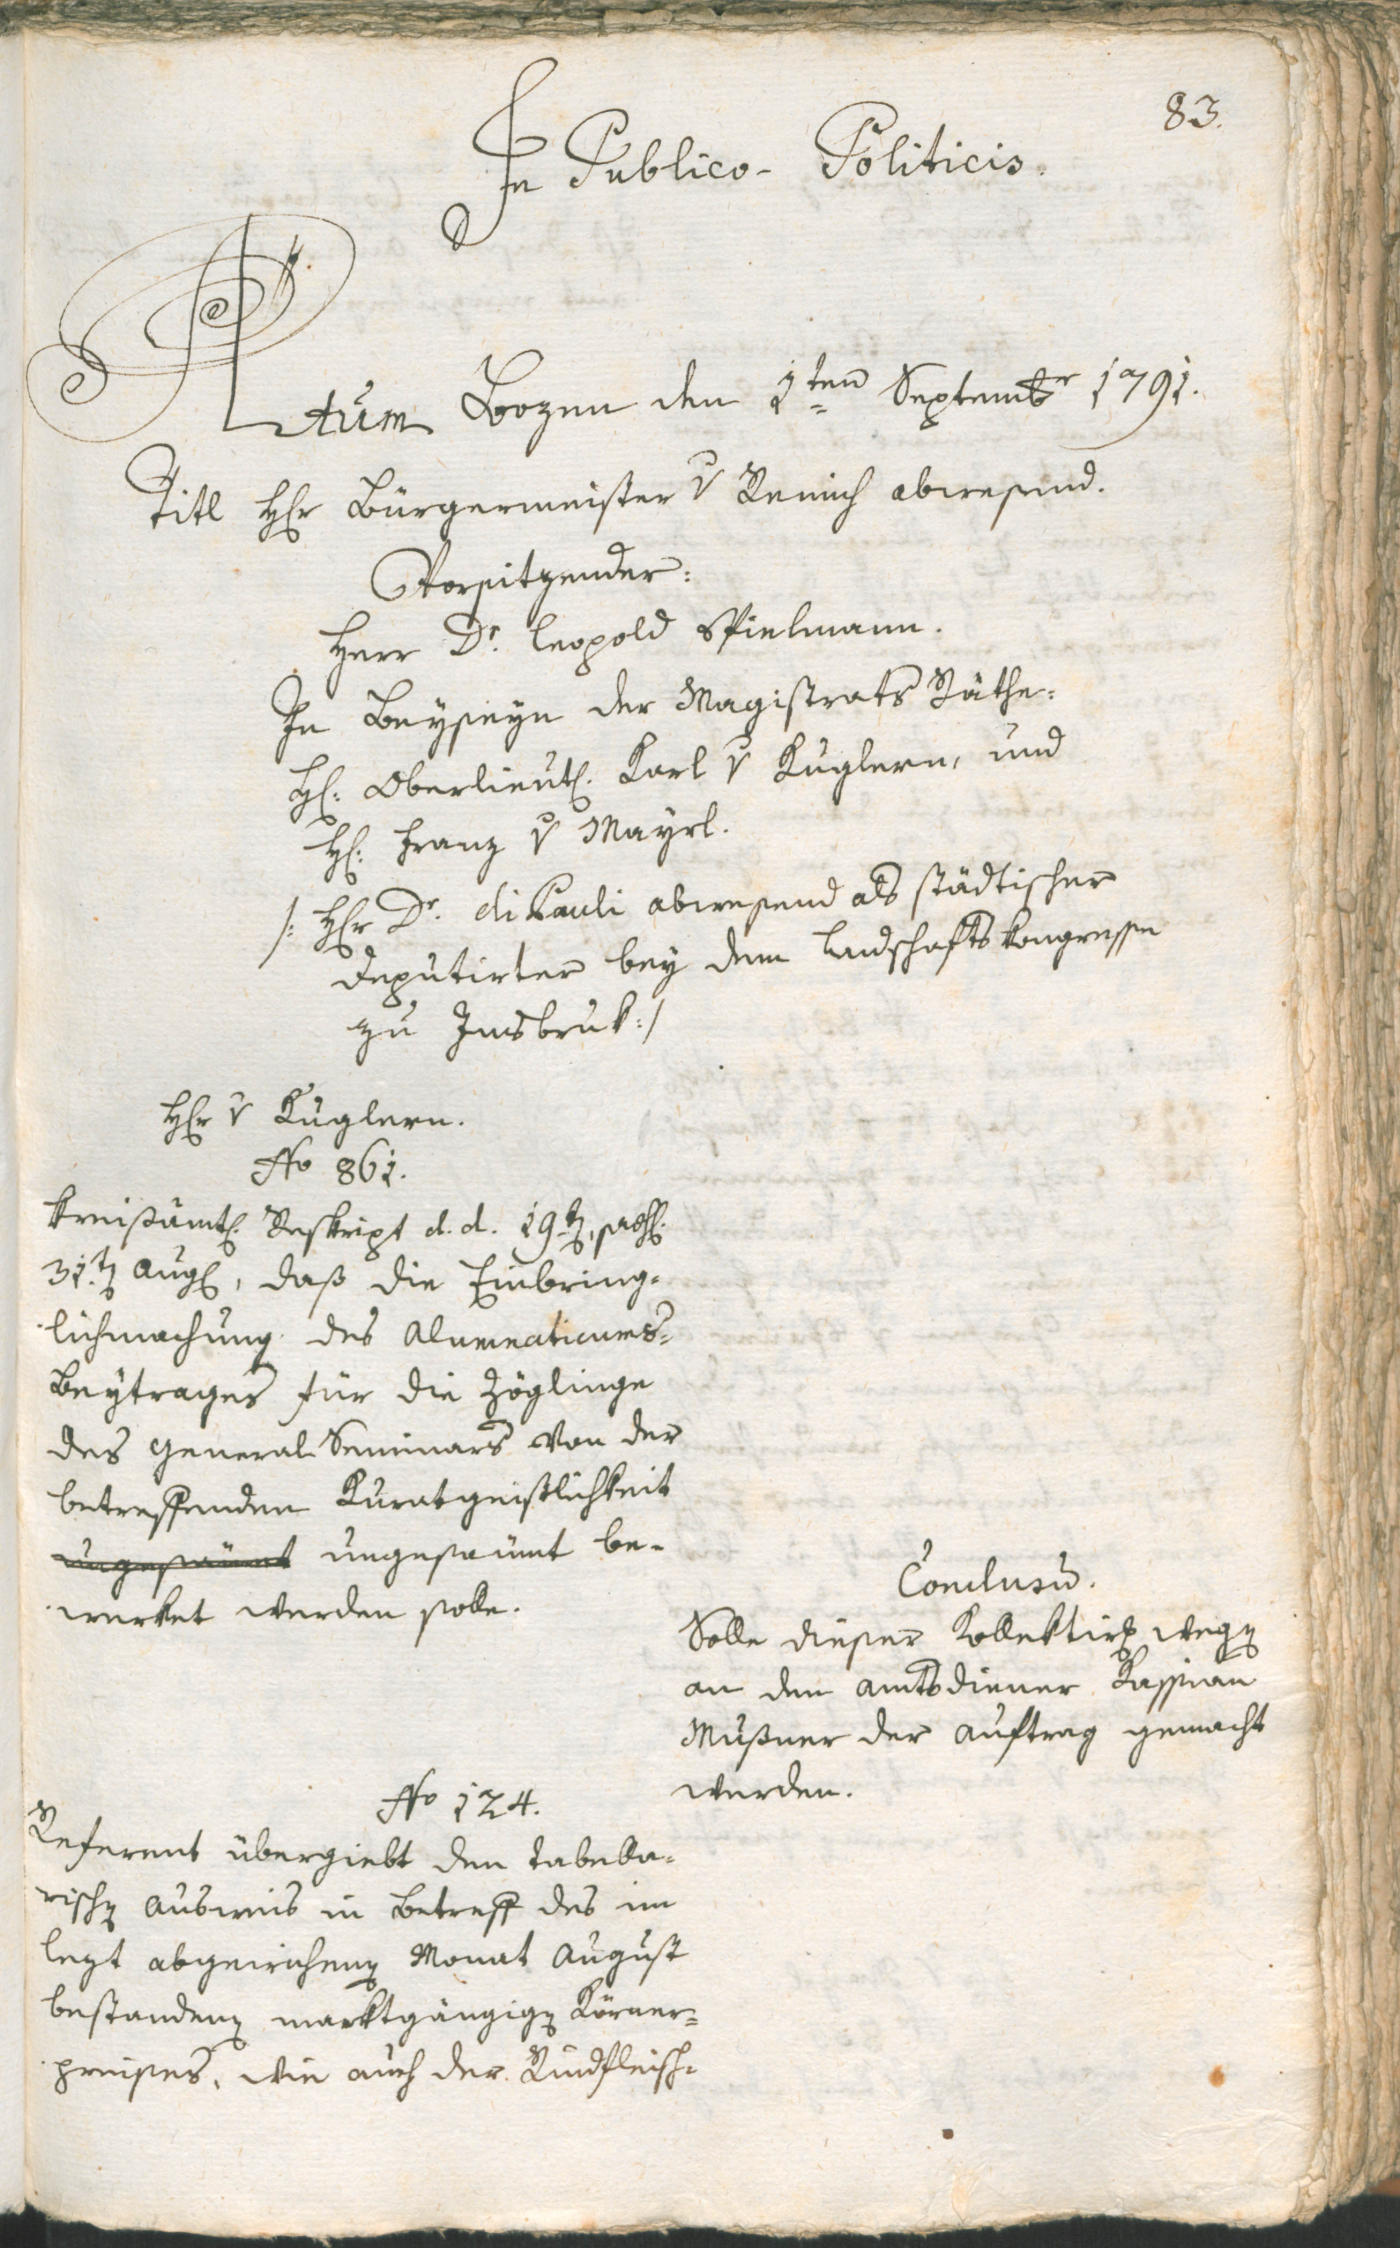 83.
In Publico- Politicis.
Actum Bozen den 1ten Septembr 1791.
Titl Hr Bürgermeister v Remich abwesend.
Vorsitzender:
Herr Dr. Leopold Spielmann.
In Beyseyn der Magistrats Räthe:
H: Oberlieut. Karl v Kuglern, und
H: Franz v Mayrl.
/: Hr Dr. di Pauli abwesend als städtischer
Deputirter bey dem Landschaftskongresse
zu Insbruk :/
Hr v Kuglern.
No 861.
Kreißämtl. Reskript d. d. 19t,
31.t Aug, daß die Einbring-
lichmachung des Alumnaticums-
Beytrages für die Zöglinge
des General Seminars von der
betreffenden Kuratgeistlichkeit
ungesäumt ungesäumt be-
werket werden solle.
Conclusū.
Solle dieser Kollektirg wegen
an den Amtsdiener Kassian
Mußner der Auftrag gemacht
werden.
No 124.
Referent übergiebt den tabella-
rischen Ausweis in Betreff des im
lezt abgewichenen Monat August
bestandenen marktgängigen Körner-
preises, wie auch der Rindfleisch-